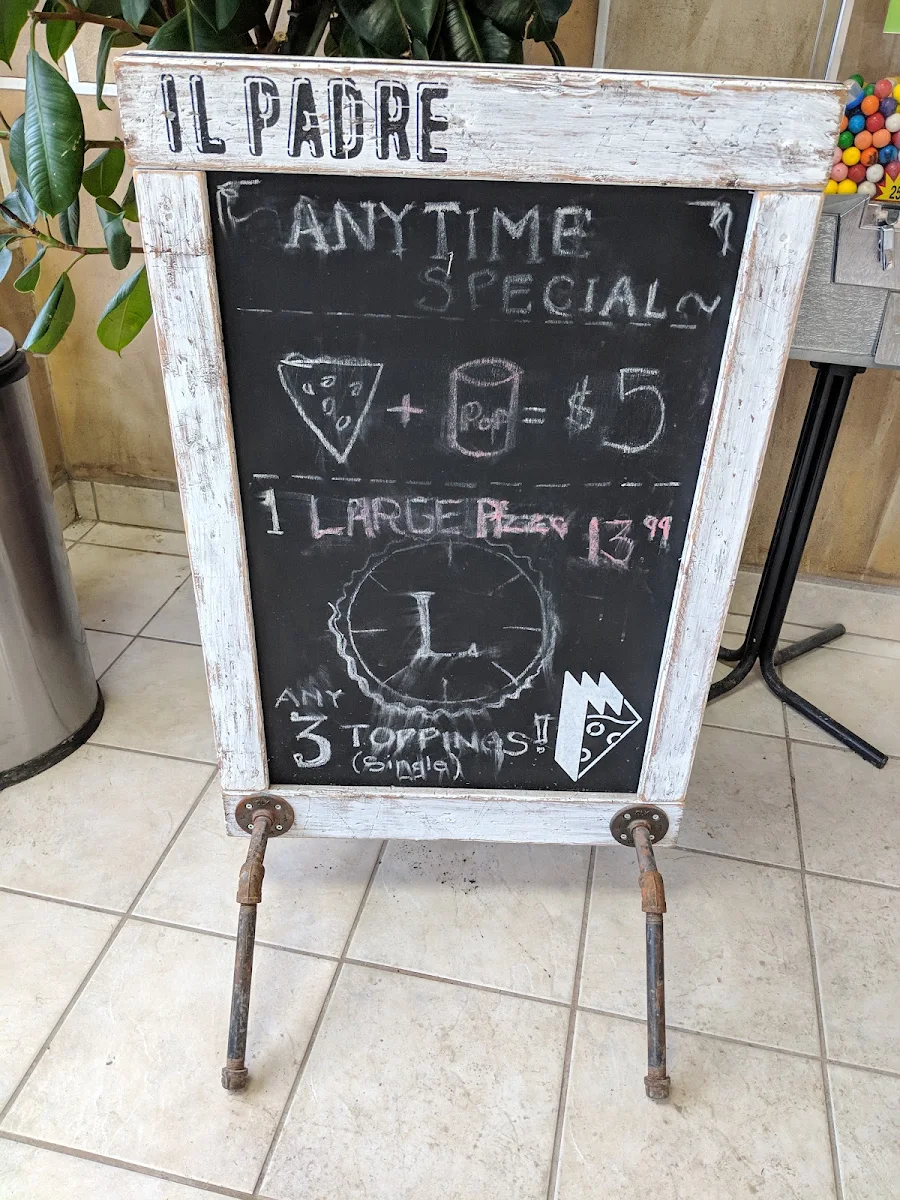 IL PADRE
ANYTIME
SPECIAL~
+ Pop = $5
1 LARGE Pizza 13.99
L
ANY
3 TOPPINGS!!
(Single)
25